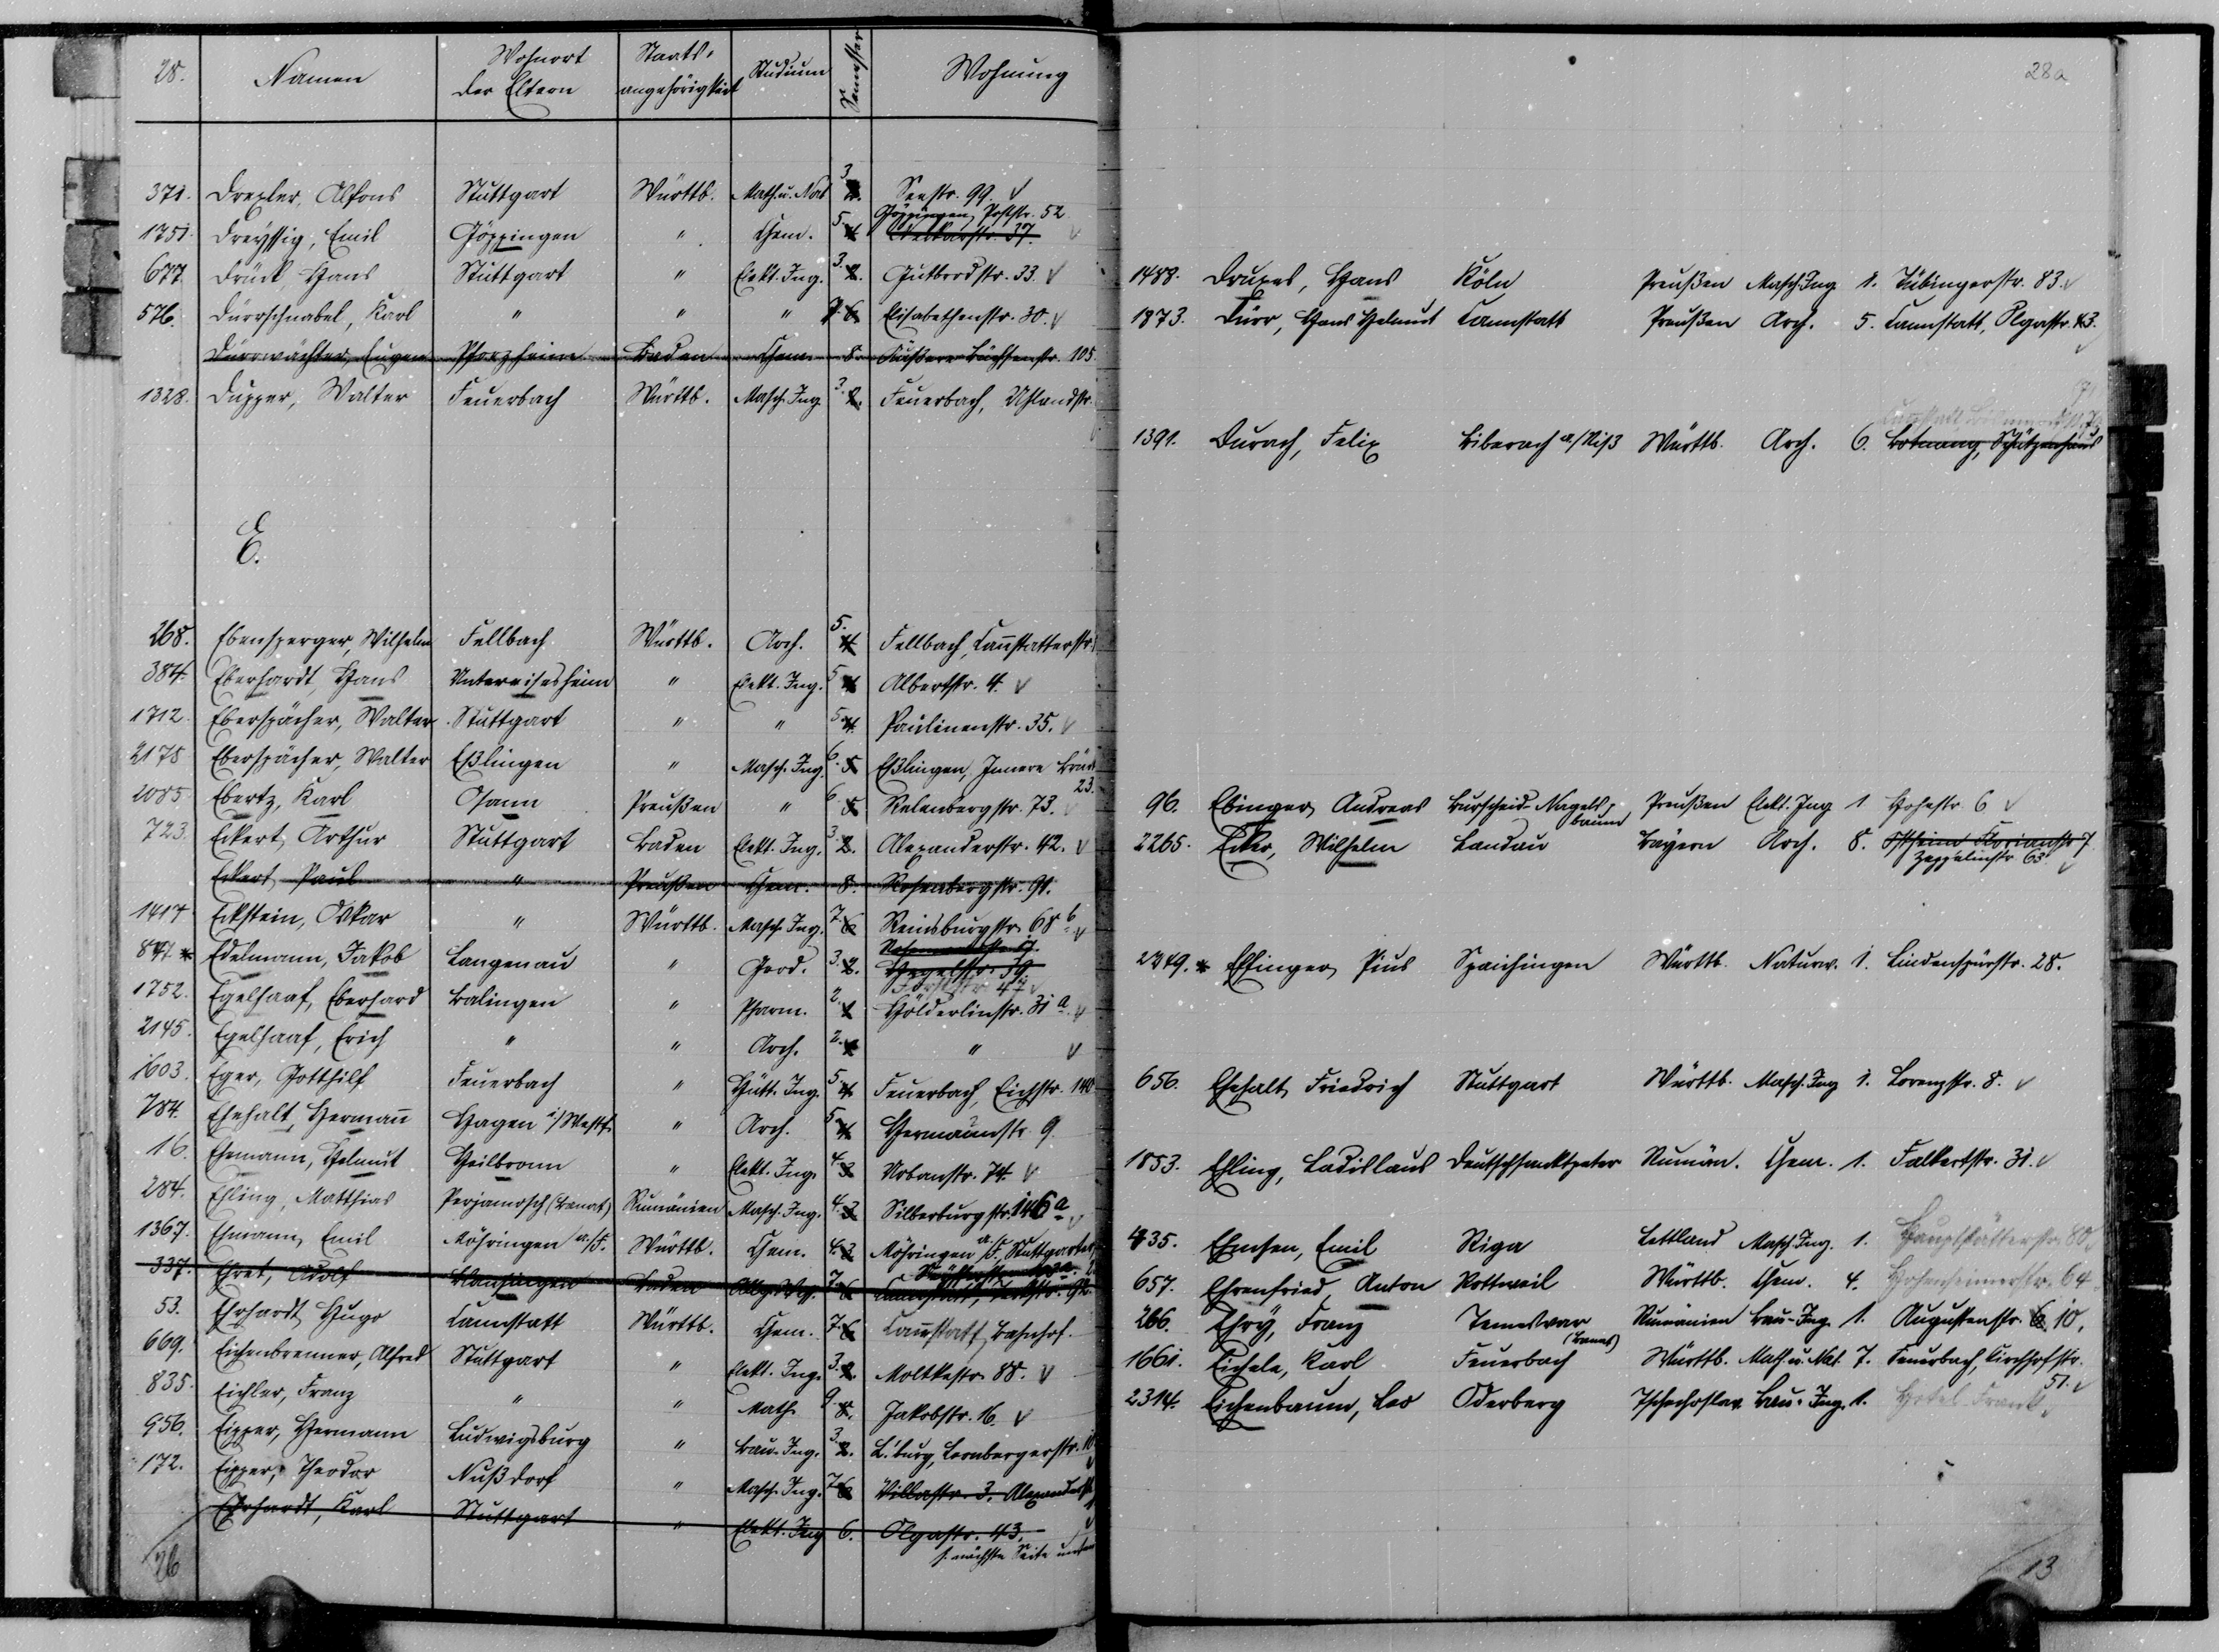 28. Namen Wohnort der Eltern Staats-angehörigkeit Studium Semester Wohnung
371. Drexler, Alfons Stuttgart Württb. Math. u. Nat. 3 2. Seestr. 99.
Göppingen, Poststr. 52
1751. Dreyssig, Emil Göppingen " Chem. 5 4 37.
677. Drück, Hans Stuttgart " Elekt. Ing. 3. 2. Gutbrodstr. 33.
576. Dürrschnabel, Karl " " " 7. 6. Elisabethenstr. 30.
Dürrwächter, Eugen Pforzheim Baden Chem. 8. Äußere Büchsenstr. 105.
1328. Dupper, Walter Feuerbach Württb. Masch. Ing. 3. 2. Feuerbach, Uhlandstr.
E.
268. Ebensperger, Wilhelm Fellbach Württb. Arch. 5. 4 Fellbach, Cannstatterstr.
384. Eberhardt, Hans Untereisesheim " Elekt. Ing. 5 4 Albertstr. 4.
1712. Eberspächer, Walter Stuttgart " " 5. 4. Paulinenstr. 35.
2178 Eberspächer, Walter Eßlingen " Masch. Ing. 6. 5 Eßlingen, Innere Brück
23.
2085. Ebertz, Karl Osann Preußen " 6 5 Relenbergstr. 73.
723. Eckert, Arthur Stuttgart Baden Elekt. Ing. 3. 2. Alexanderstr. 42.
Eckert, Paul " Preußen Chem. 8. Rosenbergstr. 91.
1414 Eckstein, Oskar " Württb. Masch. Ing. 7. 6 Reinsburgstr. 68 b
847 * Edelmann, Jakob Langenau " Geod. 3. 2. Hegelstr. 59.
47
1752. Egelhaaf, Eberhard Balingen " Pharm. 2. 1 Hölderlinstr. 31 a.
2145. Egelhaaf, Erich " " Arch. 2. 1 "
1603. Eger, Gotthilf Feuerbach " Hütt. Ing. 5 4. Feuerbach, Eichstr. 140
784. Ehehalt, Hermann Hagen i/Westf. " Arch. 5 4 Hermannstr. 9.
16. Ehemann, Helmut Heilbronn " Elekt. Ing. 4. 3 Urbanstr. 74.
284. Ehling, Matthias Perjamosch (Banat) Rumänien Masch. Ing. 4. 3 Silberburgstr. 146 a
1367. Ehmann, Emil Möhringen a./F. Württb. Chem. 4. 3 Möhringen a/F. Stuttgarter
337. Ehret, Adolf Blansingen Baden 7. 6 Cannstatt, 92.
53. Ehrhardt, Hugo Cannstatt Württb. Chem. 7. 6 Cannstatt, Bahnhof.
669. Eichenbrenner, Alfred Stuttgart " Elekt. Ing. 3. 2. Moltkestr. 88.
835. Eichler, Franz " " Math. 9. 8. Jakobstr. 16.
956. Eipper, Hermann Ludwigsburg " Bau. Ing. 3. 2. L'burg, Leonbergerstr.
172. Eipper, Theodor Nußdorf " Masch. Ing. 7 6 Villastr. 3. Alexanderstr
Ehrhardt, Karl Stuttgart " Elekt. Ing 6. Olgastr. 43.
s. nächste Seite unten
26
28a
1488. Drupes, Hans Köln Preußen Masch. Ing. 1. Tübingerstr. 83.
1873. Dürr, Hans Helmut Cannstatt Preußen Arch. 5. Cannstatt, Olgastr. 43.
1391. Durach, Felix Biberach a/Riß Württb. Arch. 6. Botnang, Schützenhaus
96. Ebinger, Andreas Burscheid-Nagels-baum Preußen Elekt. Ing 1 Hohestr. 6
2265. Ecker, Wilhelm Landau Bayern Arch. 8. Ostheim Florianstr. 7
Zeppelinstr. 63
2349. * Effinger, Pius Spaichingen Württb. Naturw. 1. Lindenspürstr. 28.
656. Ehehalt, Friedrich Stuttgart Württb. Masch. Ing 1. Lorenzstr. 8.
1853. Ehling, Ladislaus Deutschsanktpeter Rumän. Chem. 1. Falkertstr. 31.
435. Ehmsen, Emil Riga Lettland Masch. Ing. 1. Hauptstätterstr. 80
657. Ehrenfried, Anton Rottweil Württb. Chem. 4. Hohenheimerstr. 64
266. Ehry, Franz Temeswar (Banat) Rumänien Bau-Ing. 1. Augustenstr. 10.
1661. Eichele, Karl Feuerbach Württb. Math. u. Nat. 7. Feuerbach, Kirchhofstr.
51.
2314. Eichenbaum, Leo Oderberg Tschechoslav. Bau-Ing. 1. Hotel Frank
13